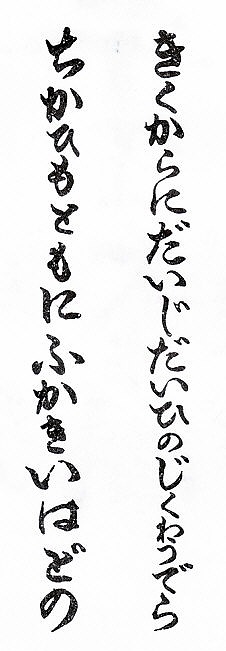 きくからにだいじだいひのじくわうでら
ちかひもともにふかきいはどの